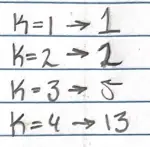 K=1 → 1
K=2 → 2
K=3 → 5
K=4 → 13